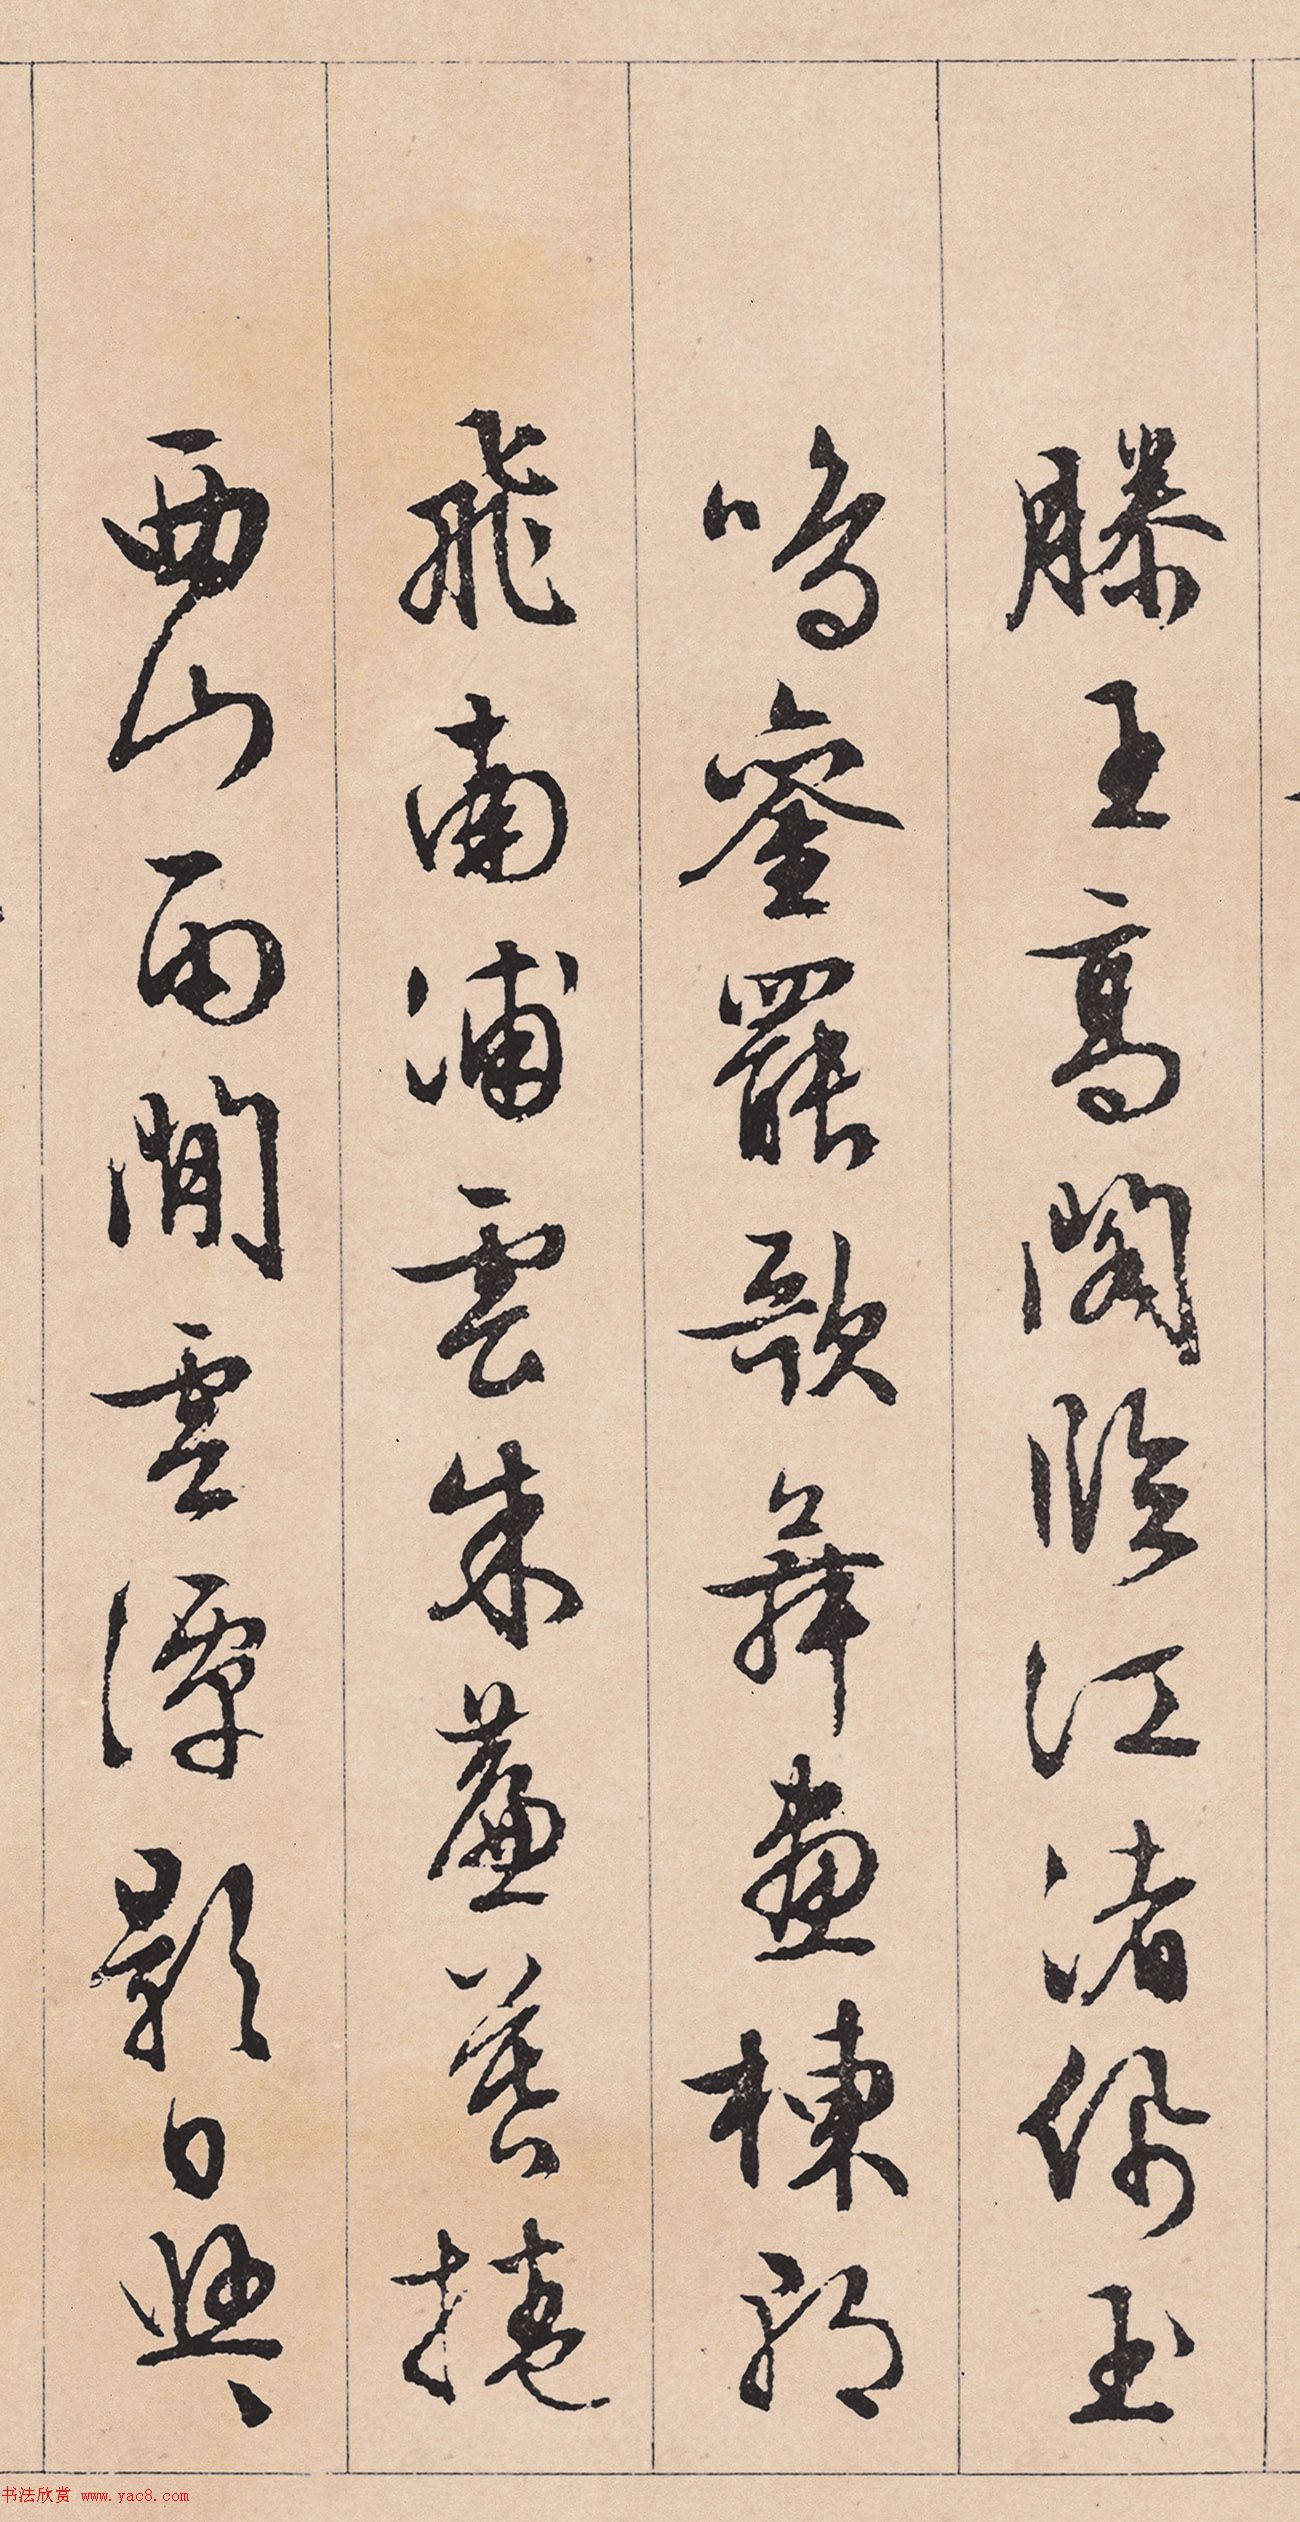 滕王高閣臨江渚佩玉
鳴鑾罷歌舞畫棟朝
飛南浦雲朱簾暮捲
西山雨閒雲潭影日興
书法欣赏 www.yac8.com